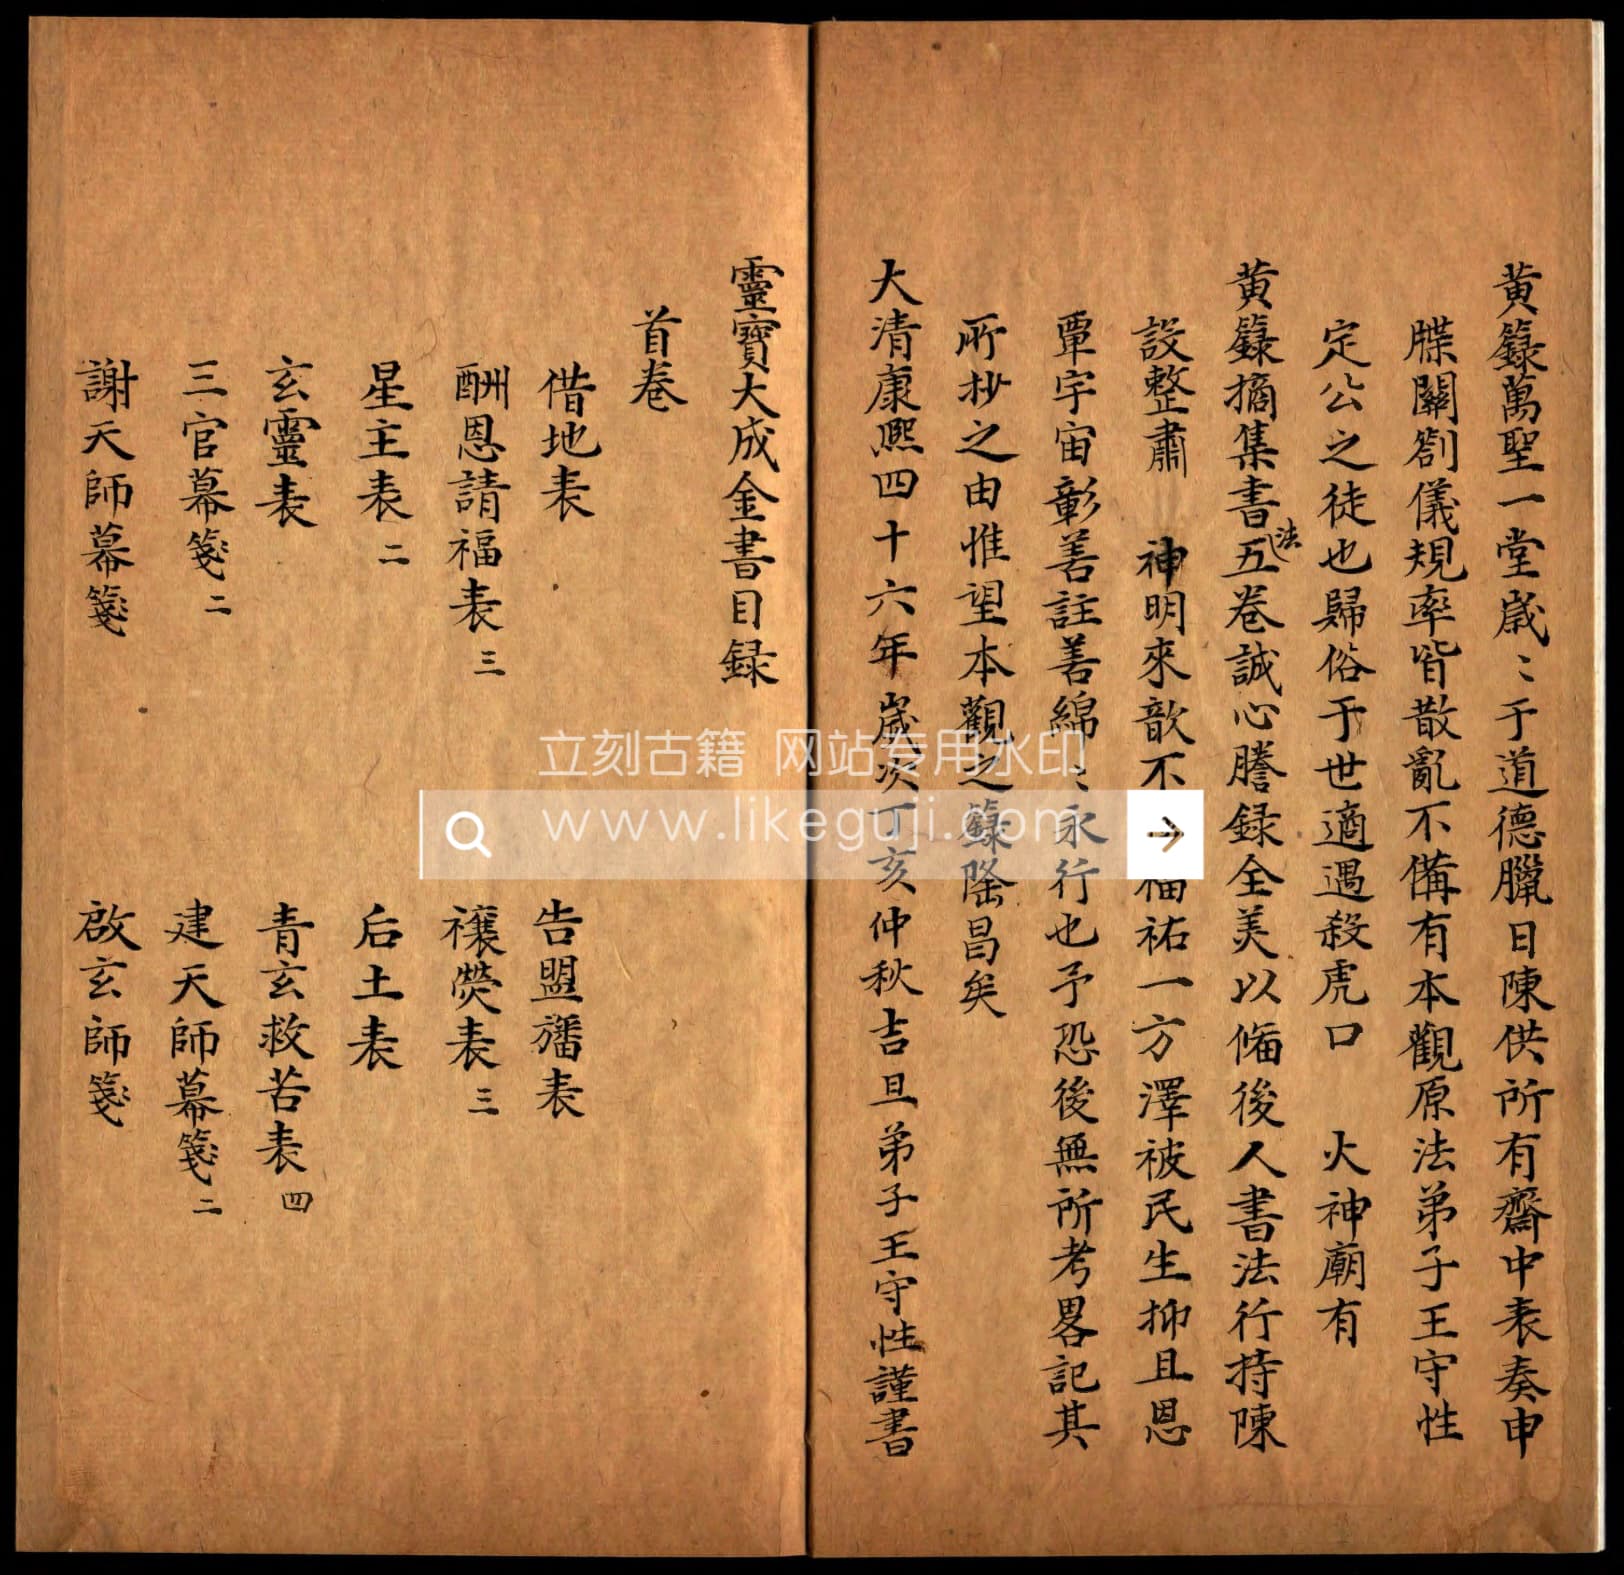 黃籙萬聖一堂歲〻于道德臘日陳供所有齋中表奏申
牒關劄儀規率皆散亂不備有本觀原法弟子王守性
定公之徒也歸俗于世適遇殺虎口 火神廟有
黃籙摘集書五法卷誠心謄録全美以俻後人書法行持陳
設整肅 神明來歆不福祐一方澤被民生抑且恩
覃宇宙彰善註善綿〻永行也予恐後無所考畧記其
所抄之由惟望本觀之籙隆昌矣
大清康熙四十六年嵗次丁亥仲秋吉旦弟子王守性謹書
靈寶大成金書目録
首卷
借地表 告盟旛表
酬恩請福表三 禳熒表三
星主表二 后土表
玄靈表 青玄救苦表四
三官幕箋二 建天師幕箋二
謝天師幕箋 啟玄師箋
立刻古籍 网站专用水印
www.likeguji.com